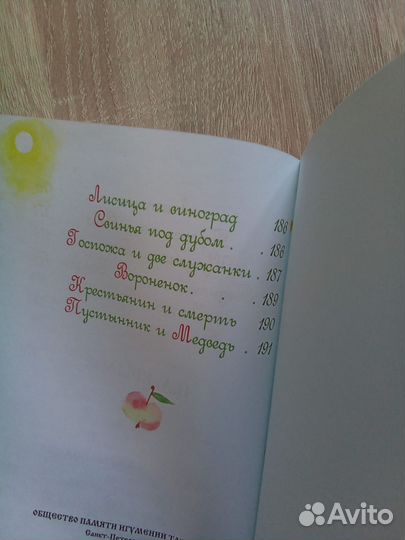 Лисица и виноград 186
Свинья под дубом . . 186
Госпожа и две служанки . 187
Вороненок . . . 189
Крестьянин и смерть 190
Пустынник и Медведь . 191
ОБЩЕСТВО ПАМЯТИ ИГУМЕНИИ
Avito